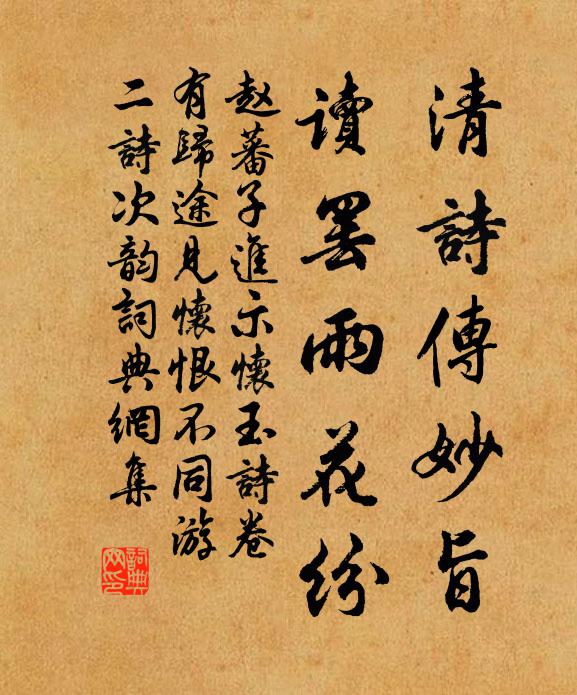 清詩傳妙旨
讀罷雨花紛
赵蕃子進示懷玉詩卷
有歸途見懷恨不同游
二詩次韵詞典網集
詞典
网印